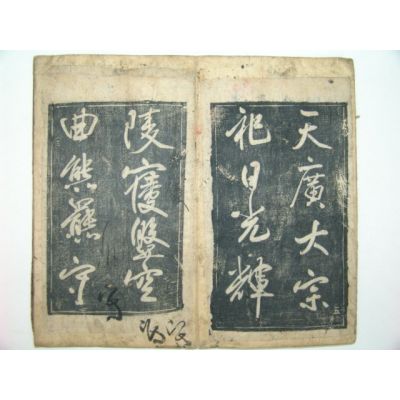 天廣大宗
祀日光輝
陵寢盤空
曲熊羆守